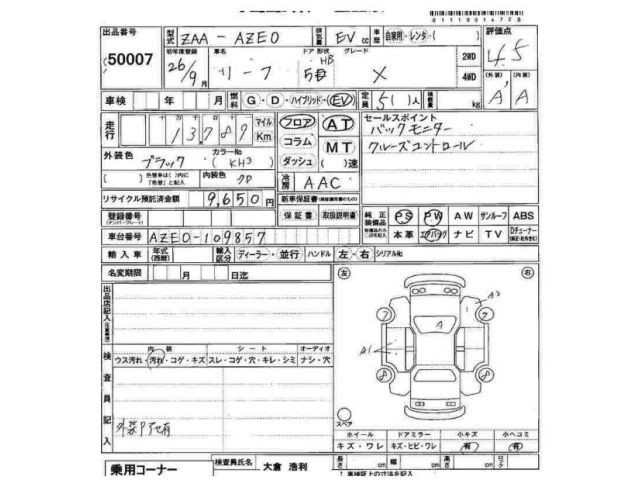 出品番号 50007
型式 ZAA-AZE0 排気量 EV cc 車歴 自家用・レンタ( ) 評価点 4.5
初年度登録 26/9月 車名 リーフ ドア 形状 5 HB グレード X 2WD 4WD (外装) A (内装) A
車検 年 月 燃料 G・D・ハイブリッド・EV 定員 5( )人 積載量 kg
走行 十万 万 千 百 十 一 13789 マイル Km
フロア コラム ダッシュ
AT MT ( )速
セールスポイント
バックモニター
クルーズコントロール
外装色 ブラック カラーNo. (KH3)
( ) 色替車は( )内に「色替」と記入 内装色 クロ
冷房 AAC
リサイクル預託済金額 9,650円
新車保証書
保証書 取扱説明書
登録番号 (ナンバープレート)
純正装備品 PS PW AW サンルーフ ABS
本革 エアバッグ ナビ TV Dチューナー
車台番号 AZE0-109857
輸入車 年式(西暦) 輸入区分 ディーラー・並行 ハンドル 左・右 シリアルNo.
名変期限 月 日迄
出品店記入
左 右
検査員記入
内装 シート オーディオ
ウス汚れ・汚れ・コゲ・キズ スレ・コゲ・穴・キレ・シミ ナシ・穴
A2
A
A1
7 7
8 8
外装アセ有
スペア
ホイール ドアミラー 小キズ 小ヘコミ
キズ・ワレ キズ・ヒビ・ワレ (有) (有)
乗用コーナー 検査員氏名 大倉 浩利
長さ cm 幅 cm 高さ cm ロック
↑車検証上の寸法を記入